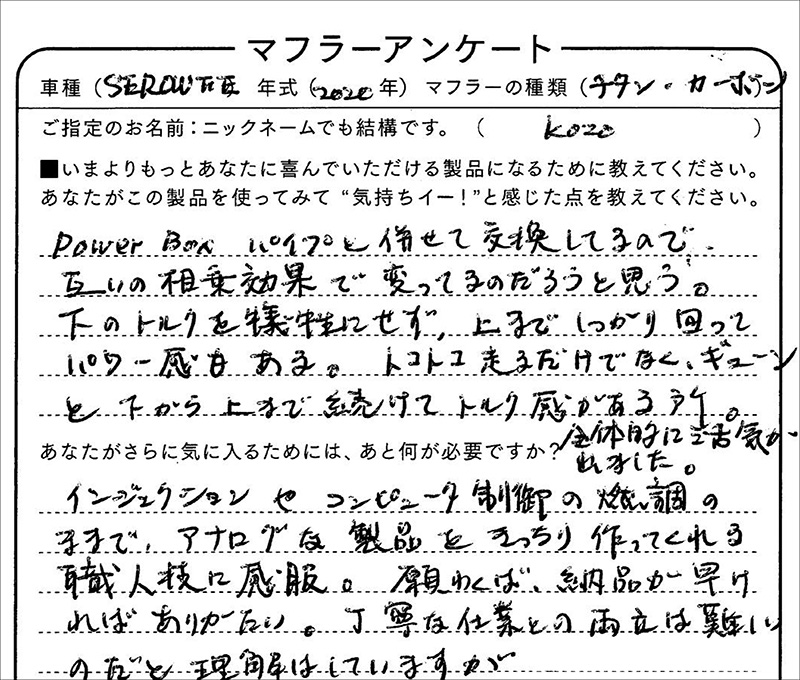 マフラーアンケート
車種（SEROW FE 年式（2020年）マフラーの種類（チタン・カーボン）
ご指定のお名前：ニックネームでも結構です。（ kozo ）
■いまよりもっとあなたに喜んでいただける製品になるために教えてください。
あなたがこの製品を使ってみて“気持ちイー！”と感じた点を教えてください。
Power Box パイプと併せて交換してるので、
互いの相乗効果で変ってるのだろうと思う。
下のトルクを犠牲にせず、上までしっかり回って
パワー感もある。トコトコ走るだけでなく、ギューン
と下から上まで続けてトルク感がある所。
全体的に活気が
れました。
あなたがさらに気に入るためには、あと何が必要ですか？
インジェクションやコンピュータ制御の燃調の
ままで、アナログな製品をきっちり作ってくれる
職人技に感服。願わくば、納品が早け
ればありがたい。丁寧な仕事との両立は難しい
のだと理解はしていますが